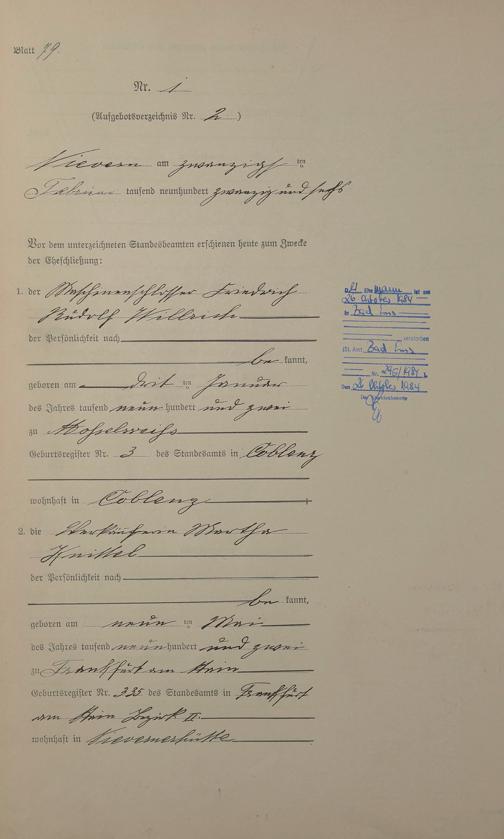 Blatt 79.
Nr. 1
(Aufgebotsverzeichnis Nr. 2)
Nievern am zwanzigsten
Februar tausend neunhundert zwanzig und sechs
Vor dem unterzeichneten Standesbeamten erschienen heute zum Zwecke
der Eheschließung:
1. der Maschinenschlosser Friedrich
Rudolf Willrich
der Persönlichkeit nach
be kannt,
geboren am dritten Januar
des Jahres tausend neunhundert und zwei
zu Moselweiß
Geburtsregister Nr. 3 des Standesamts in Coblenz
wohnhaft in Coblenz
2. die Verkäuferin Martha
Knittel
der Persönlichkeit nach
be kannt,
geboren am neunten Mai
des Jahres tausend neunhundert und zwei
zu Frankfurt am Main
Geburtsregister Nr. 335 des Standesamts in Frankfurt
am Main Bezirk II.
wohnhaft in Nievernerhütte
Ehemann ist am
26. Oktober 1984
in Bad Ems
verstorben
St. Amt Bad Ems
Nr. 296/1984
Den 26. Oktober 1984